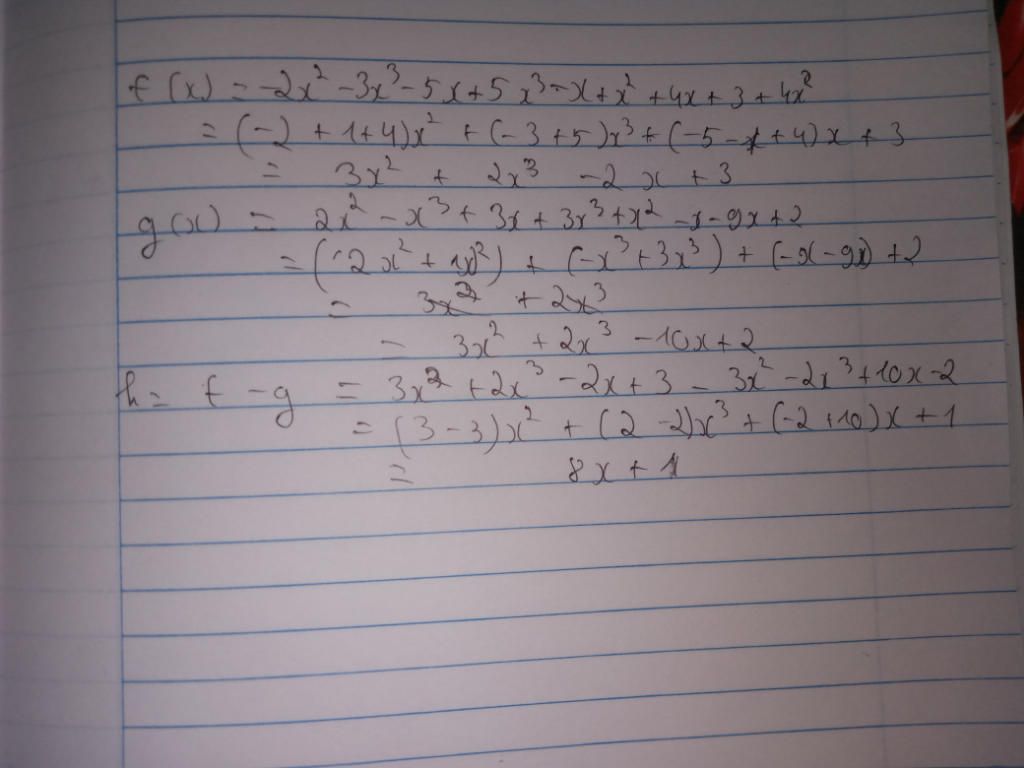 f(x) = -2x² - 3x³ - 5x + 5x³ - x + x² + 4x + 3 + 4x²
= (-2 + 1 + 4)x² + (-3 + 5)x³ + (-5 - 1 + 4)x + 3
= 3x² + 2x³ - 2x + 3
g(x) = 2x² - x³ + 3x + 3x³ + x² - x - 9x + 2
= (2x² + 1x²) + (-x³ + 3x³) + (-x - 9x) + 2
= 3x² + 2x³
= 3x² + 2x³ - 10x + 2
h = f - g = 3x² + 2x³ - 2x + 3 - 3x² - 2x³ + 10x - 2
= (3 - 3)x² + (2 - 2)x³ + (-2 + 10)x + 1
= 8x + 1